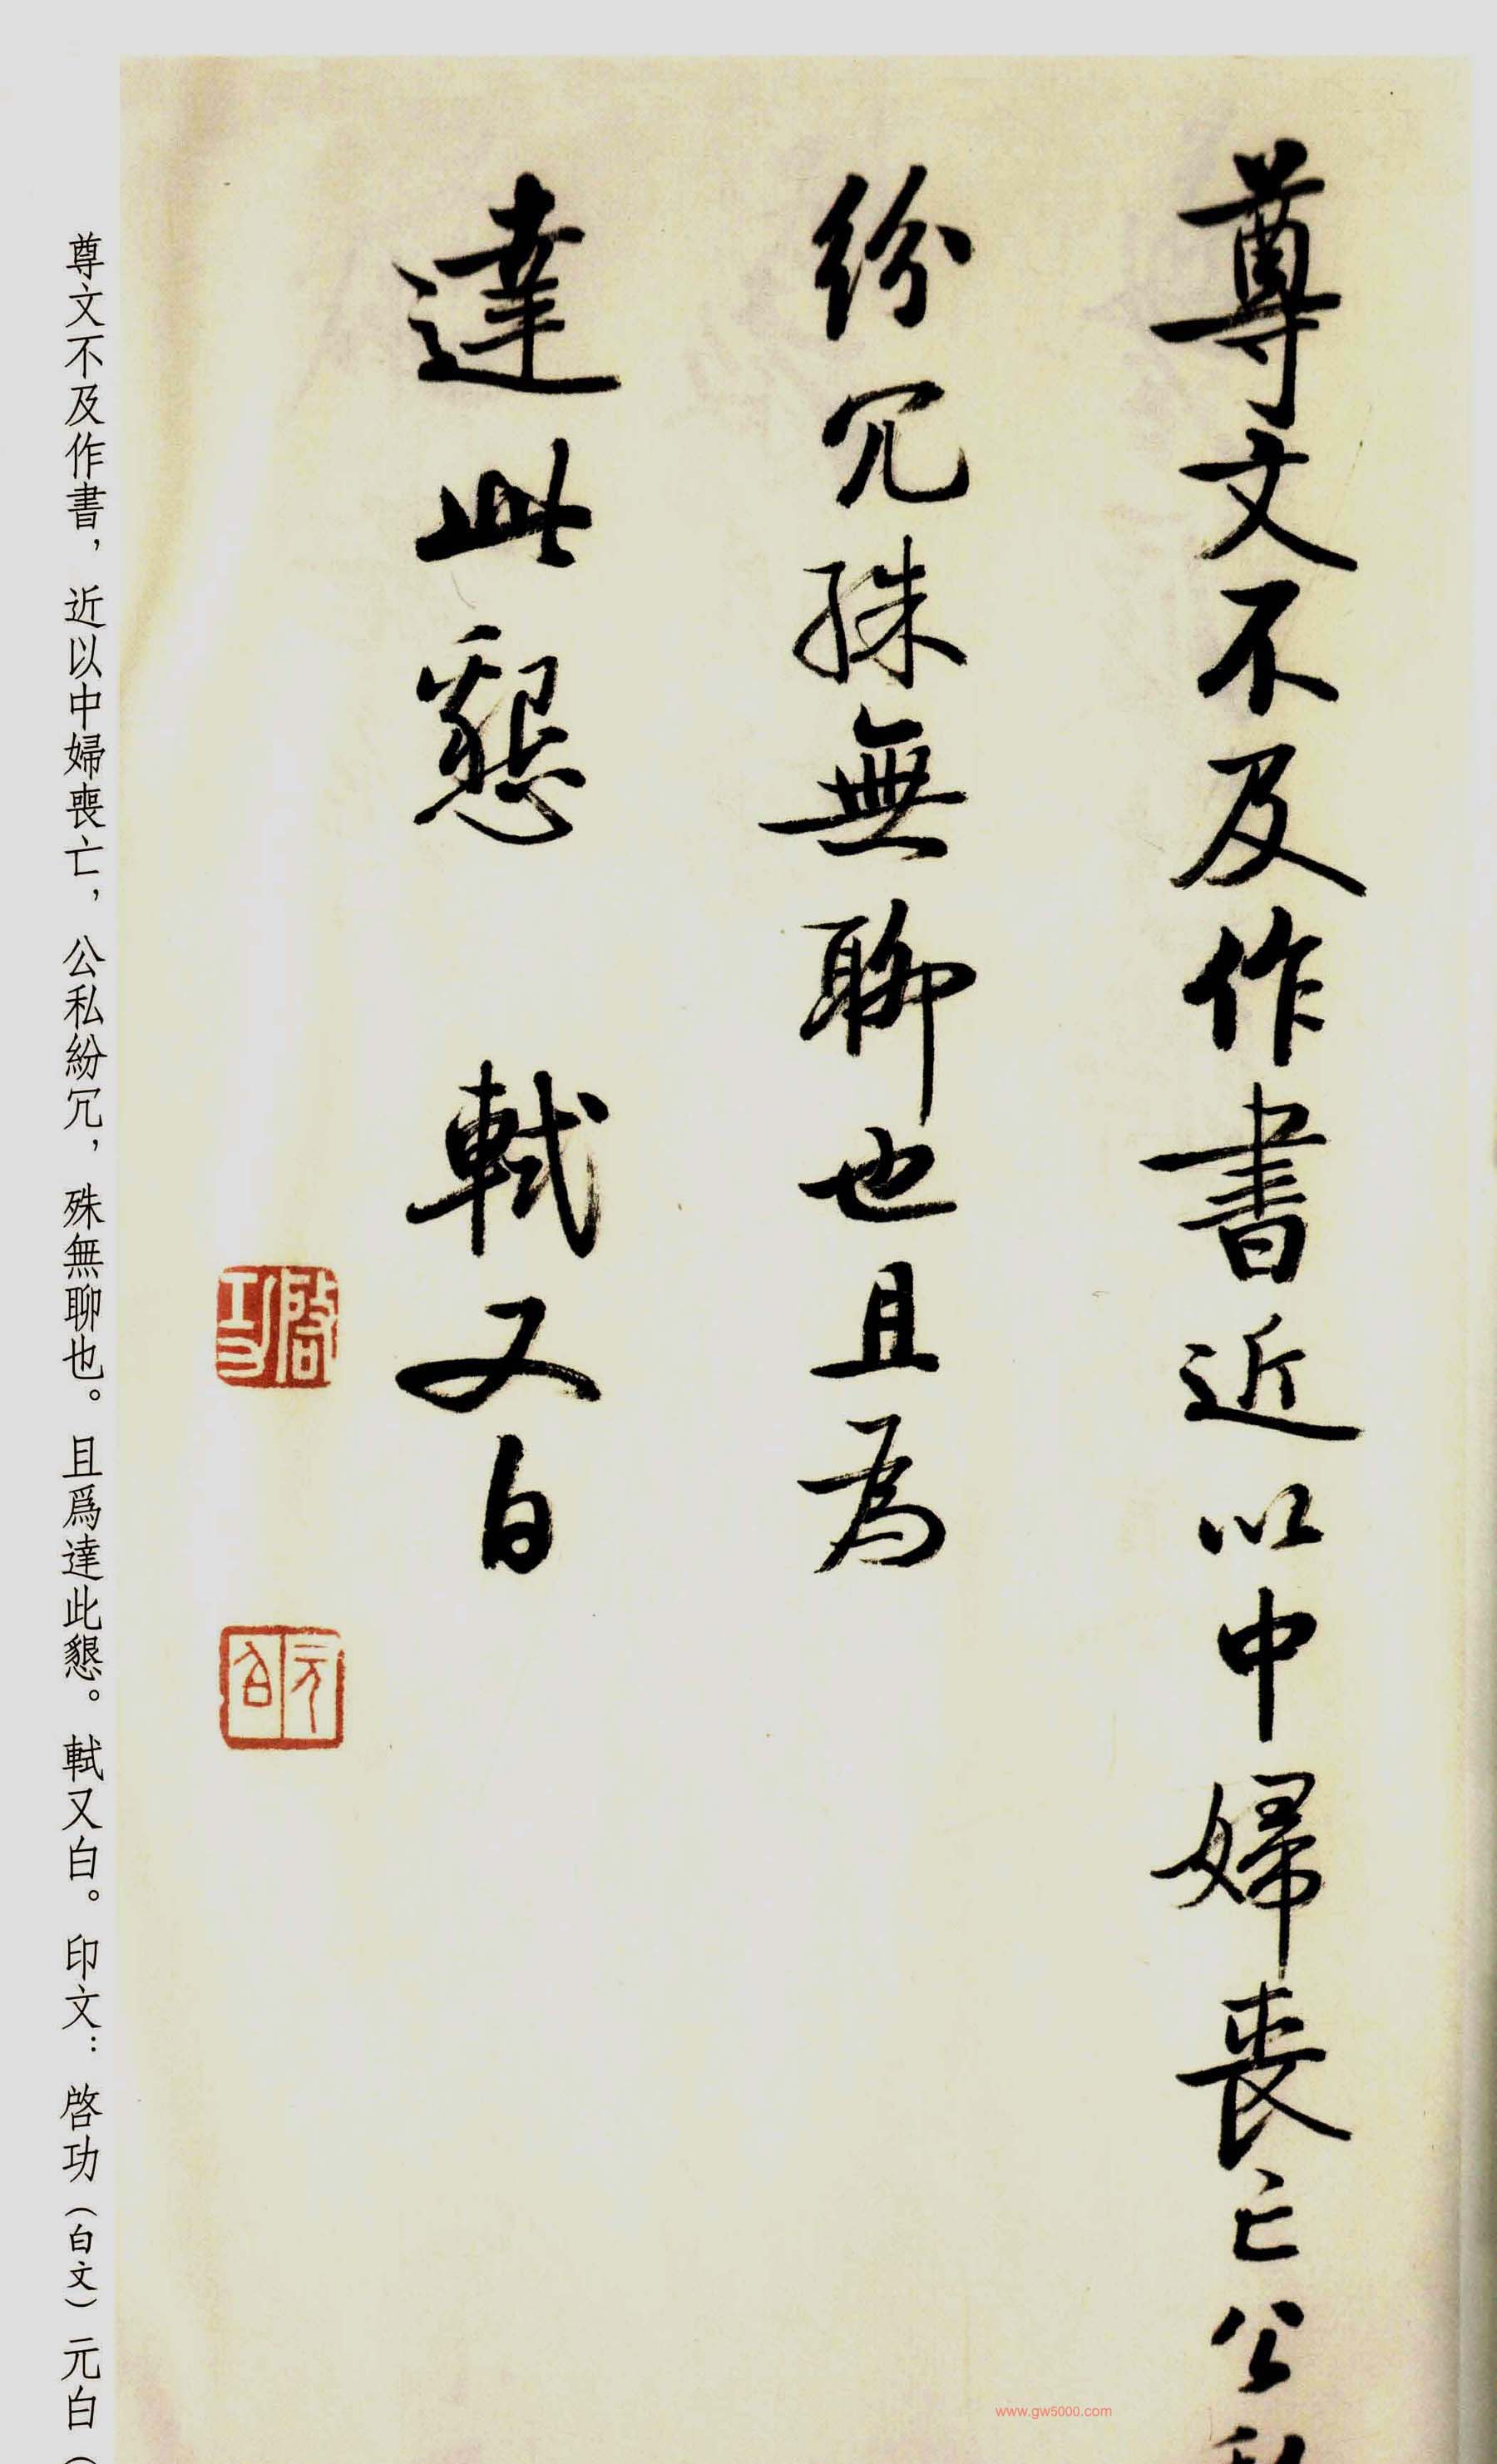 尊文不及作書近以中婦喪亡公私
紛冗殊無聊也且為
達此懇 軾又白
啓功
元白
尊文不及作書，近以中婦喪亡，公私紛冗，殊無聊也。且爲達此懇。軾又白。印文：啓功（白文）元白（
www.gw5000.com